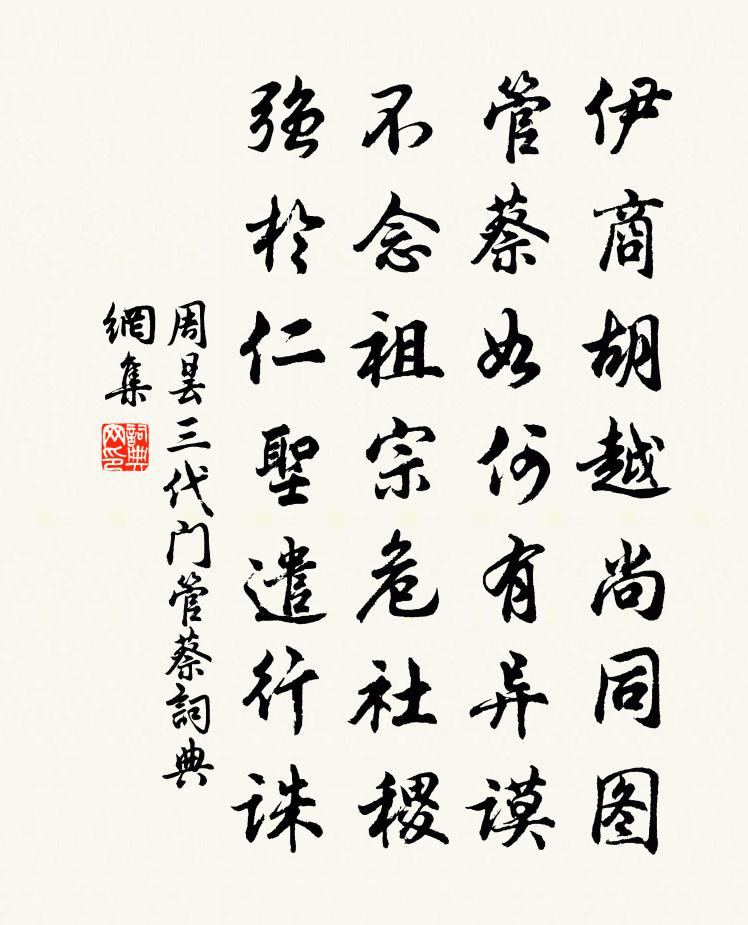 伊商胡越尚同图
管蔡如何有异谟
不念祖宗危社稷
強於仁聖遣行诛
周昙三代门管蔡詞典
網集
詞典
网印